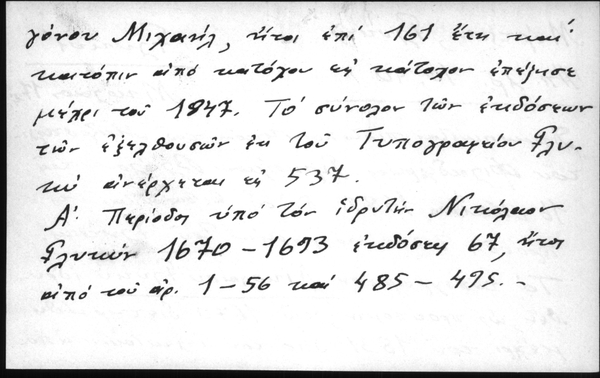 γόνου Μιχαήλ, ἤτοι ἐπί 161 ἔτη καί
κατόπιν ἀπό κατόχου εἰς κάτοχον ἐπέζησε
μέχρι τοῦ 1847. Τό σύνολον τῶν ἐκδόσεων
τῶν ἐξελθουσῶν ἐκ τοῦ Τυπογραφείου Γλυ-
κύ ἀνέρχεται εἰς 537.
Α΄ Περίοδος ὑπό τόν ἱδρυτήν Νικόλαον
Γλυκύν 1670 – 1693 ἐκδόσεις 67, ἤτοι
ἀπό τοῦ ἀρ. 1 – 56 καί 485 – 495. –